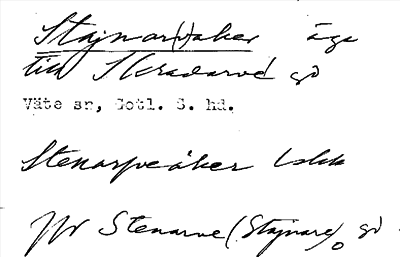 Stajnar(v)aker äga
till Skradarve gd
Väte sn, Gotl. S. hd.
Stenarveåker
jfr Stenarve (Stajnare), gd